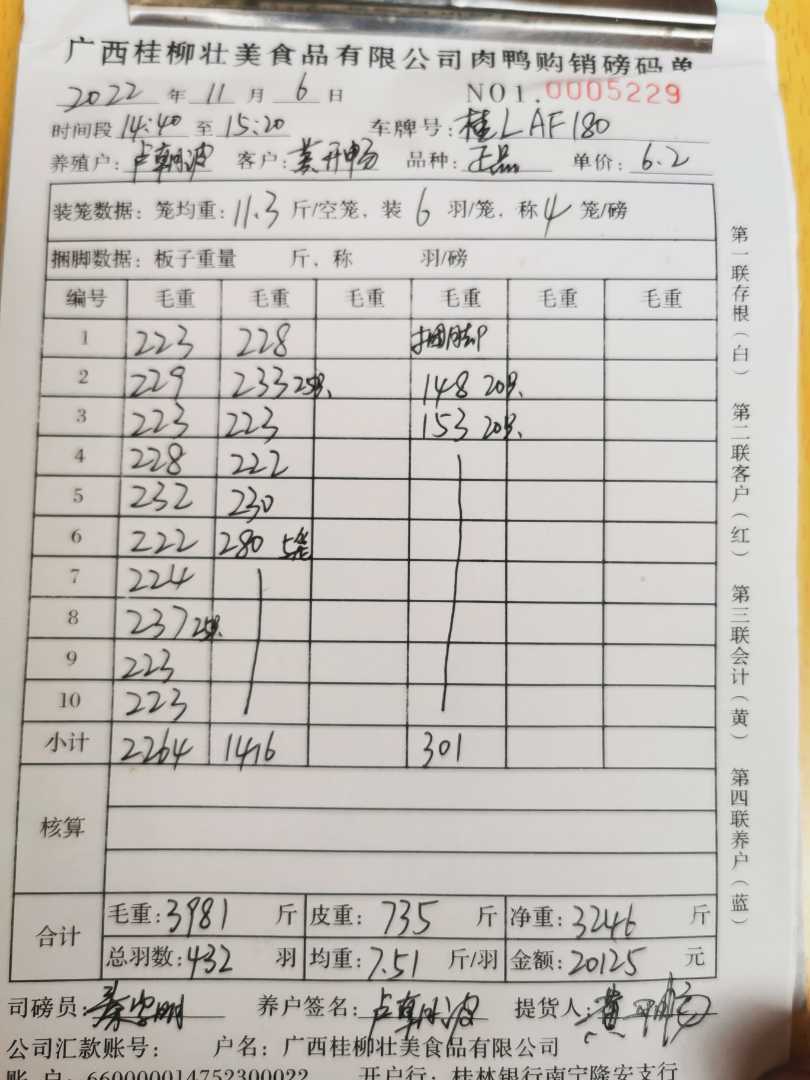 广西桂柳壮美食品有限公司肉鸭购销磅码单
2022 年 11 月 6 日 NO1.0005229
时间段 14:40 至 15:20 车牌号: 桂LAF180
养殖户: 卢朝波 客户: 黄开畅 品种: 正品 单价: 6.2
装笼数据: 笼均重: 11.3 斤/空笼, 装 6 羽/笼, 称 4 笼/磅
捆脚数据: 板子重量 斤, 称 羽/磅
编号 毛重 毛重 毛重 毛重 毛重 毛重
1 223 228 捆脚
2 229 233 25只 148 20只
3 223 223 153 20只
4 228 222
5 232 230
6 222 280 5笼
7 224
8 237 25只
9 223
10 223
小计 2264 1416 301
核算
合计
毛重: 3981 斤 皮重: 735 斤 净重: 3246 斤
总羽数: 432 羽 均重: 7.51 斤/羽 金额: 20125 元
司磅员: 养户签名: 卢朝波 提货人: 黄开畅
公司汇款账号: 户名: 广西桂柳壮美食品有限公司
账 户: 660000014752300022 开户行: 桂林银行南宁隆安支行
第一联存根(白) 第二联客户(红) 第三联会计(黄) 第四联养户(蓝)